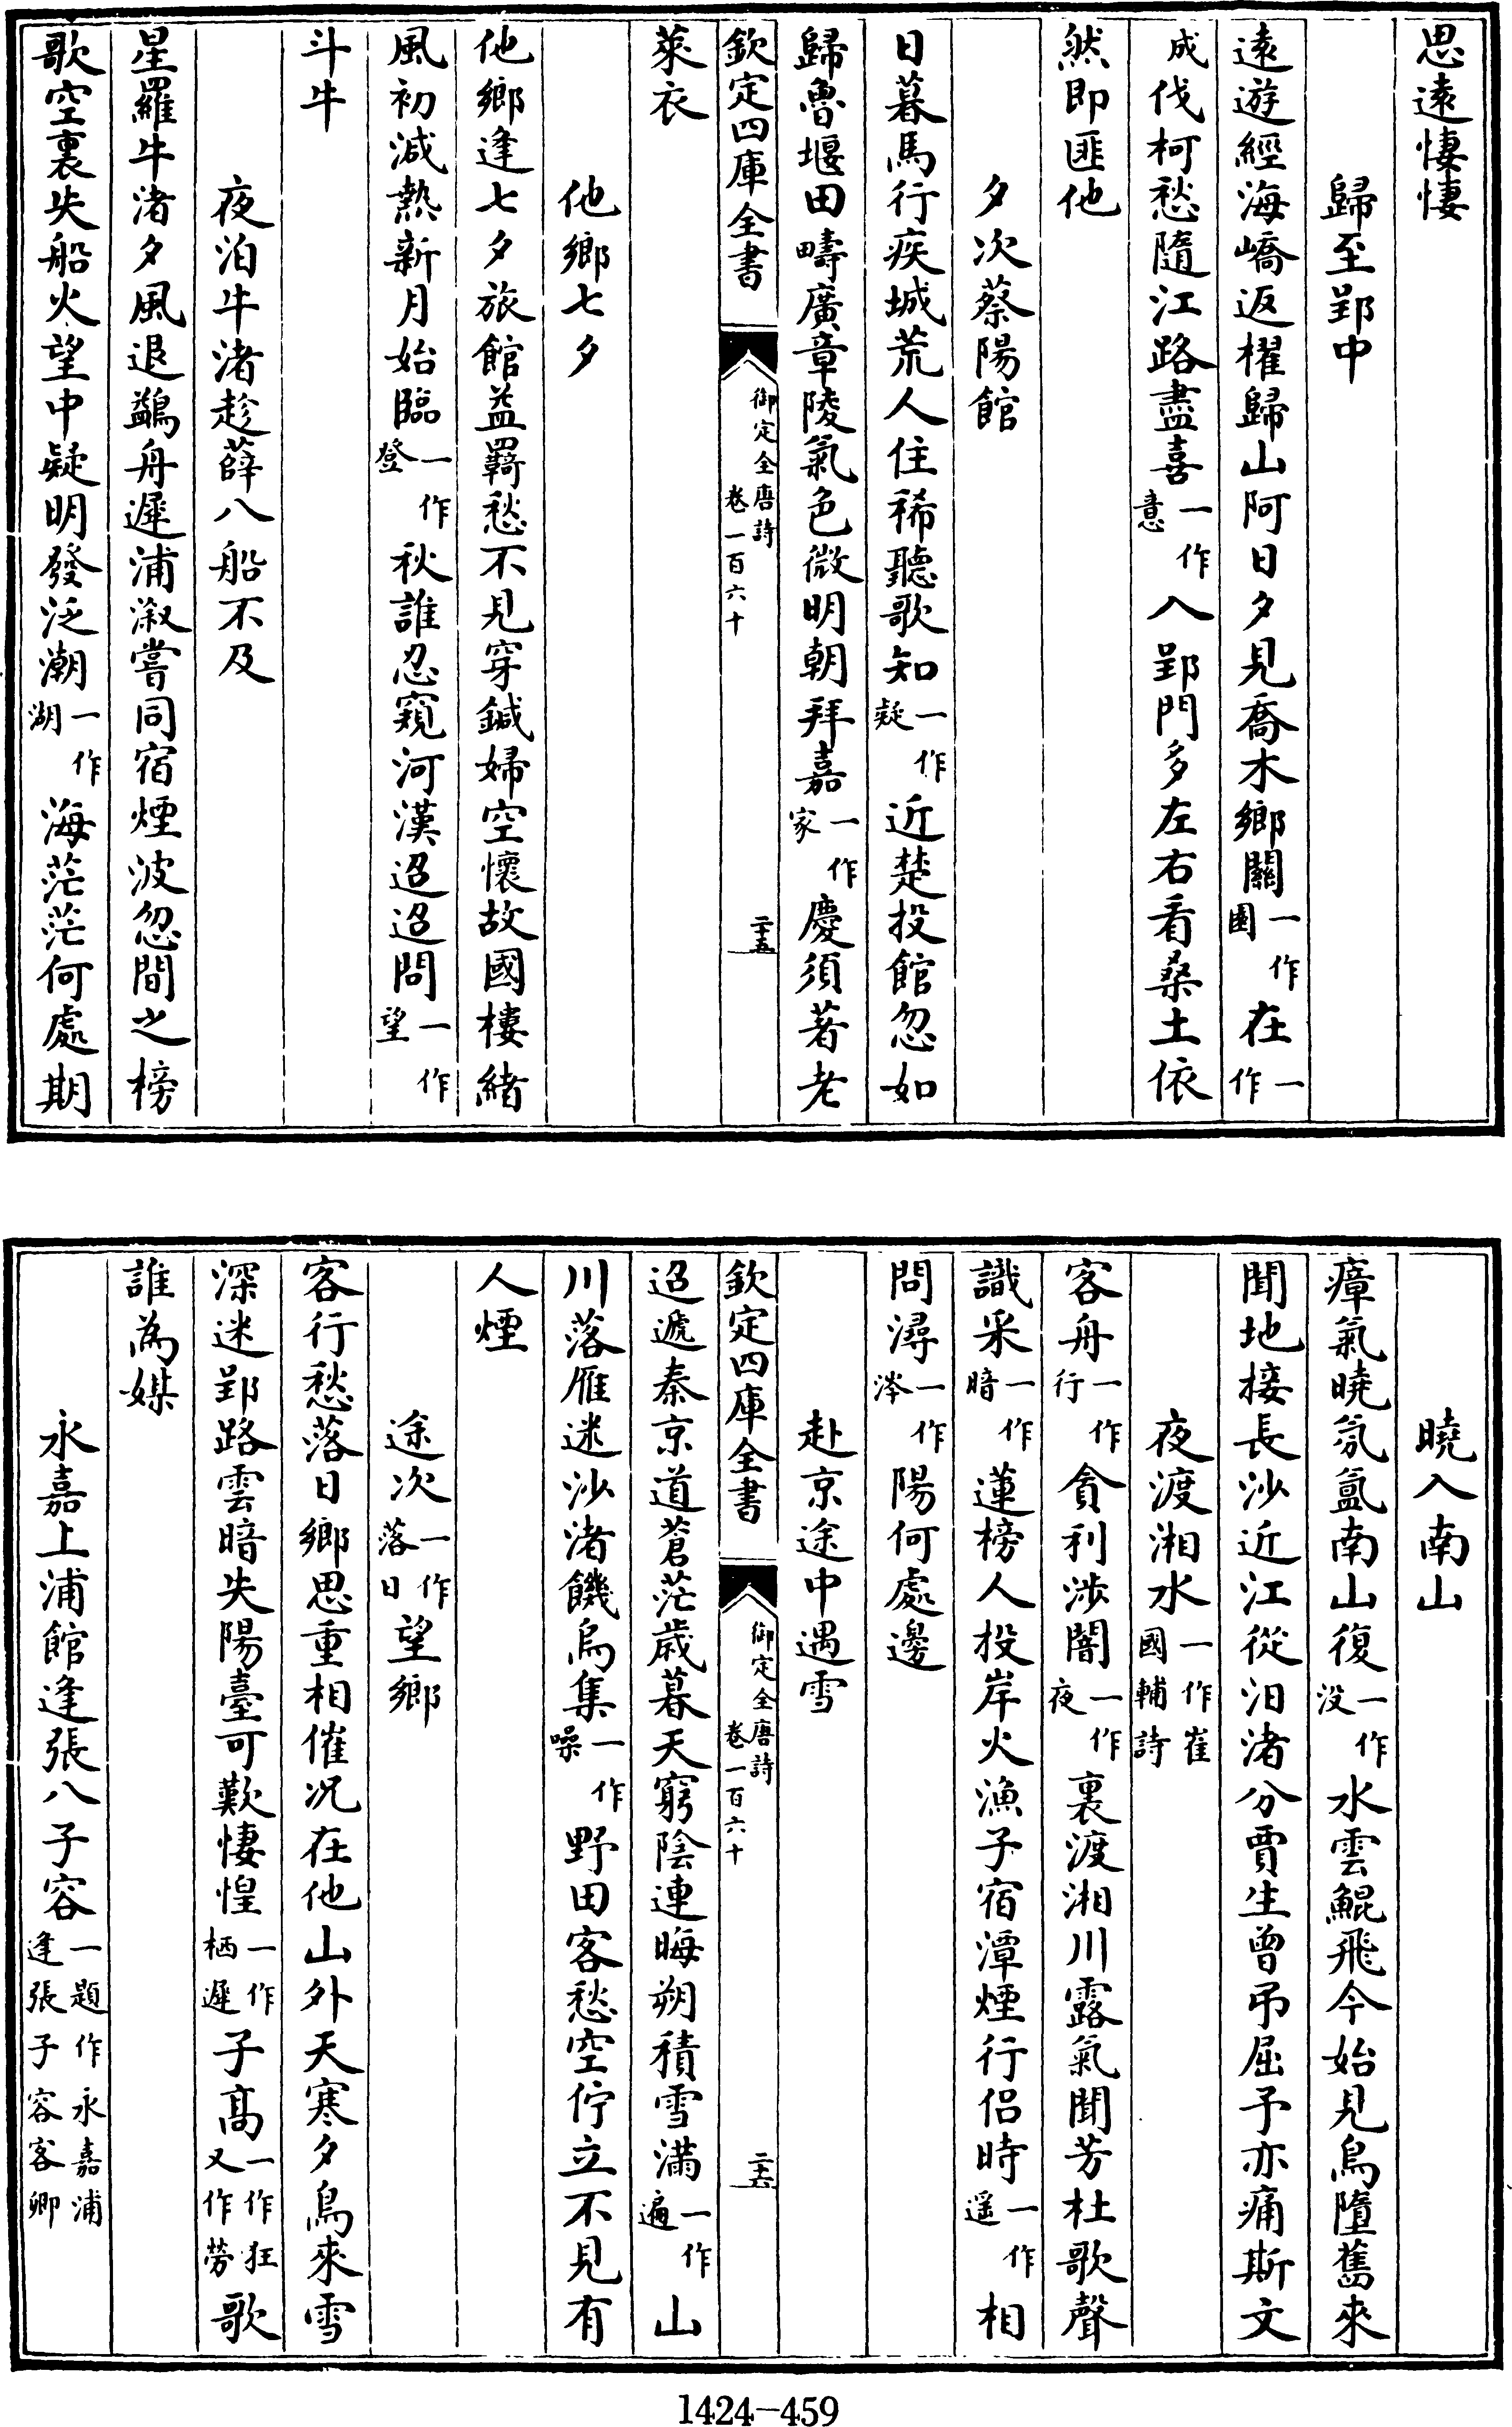 思遠悽悽
歸至郢中
遠遊經海嶠返櫂歸山阿日夕見喬木鄉關一作園在一作
成伐柯愁隨江路盡喜一作意入郢門多左右看桑土依
然即匪他
夕次蔡陽館
日暮馬行疾城荒人住稀聽歌知一作疑近楚投館忽如
歸魯堰田疇廣章陵氣色微明朝拜嘉一作家慶須著老
欽定四庫全書 御定全唐詩 卷一百六十 二十五
萊衣
他鄉七夕
他鄉逢七夕旅館益羇愁不見穿鍼婦空懷故國樓緒
風初減熱新月始臨一作登秋誰忍窺河漢迢迢問一作望
斗牛
夜泊牛渚趁薛八船不及
星羅牛渚夕風退鷁舟遲浦漵嘗同宿煙波忽間之榜
歌空裏失船火望中疑明發泛潮一作湖海茫茫何處期
曉入南山
瘴氣曉氛氳南山復一作没水雲鯤飛今始見鳥墮舊來
聞地接長沙近江從汨渚分賈生曾弔屈予亦痛斯文
夜渡湘水一作崔國輔詩
客舟一作行貪利涉闇一作夜裏渡湘川露氣聞芳杜歌聲
識采一作暗蓮榜人投岸火漁子宿潭煙行侶時一作遥相
問潯一作涔陽何處邊
赴京途中遇雪
欽定四庫全書 御定全唐詩 卷一百六十 二十六
迢遞秦京道蒼茫歲暮天窮陰連晦朔積雪滿一作遍山
川落雁迷沙渚饑烏集一作噪野田客愁空佇立不見有
人煙
途次一作落日望鄉
客行愁落日鄉思重相催况在他山外天寒夕鳥來雪
深迷郢路雲暗失陽臺可歎悽惶一作栖遲子高一作狂又作勞歌
誰為媒
永嘉上浦館逢張八子容一題作永嘉浦逢張子容客卿
1424-459